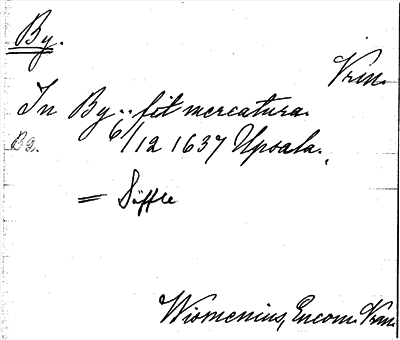 By.
Vrm.
In By.. fit mercatura.
Bg. 6/12 1637 Upsala.
= Säffle
Wiomenius, Encom. Vrm.